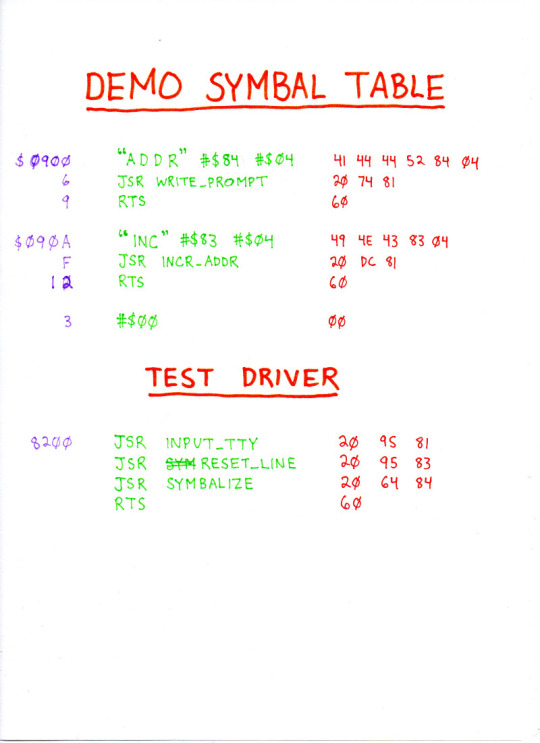 DEMO SYMBAL TABLE
$0900 "ADDR" #$84 #$04 41 44 44 52 84 04
6 JSR WRITE_PROMPT 20 74 81
9 RTS 60
$090A "INC" #$83 #$04 49 4E 43 83 04
F JSR INCR_ADDR 20 DC 81
12 RTS 60
3 #$00 00
TEST DRIVER
8200 JSR INPUT_TTY 20 95 81
JSR SYM RESET_LINE 20 95 83
JSR SYMBALIZE 20 64 84
RTS 60